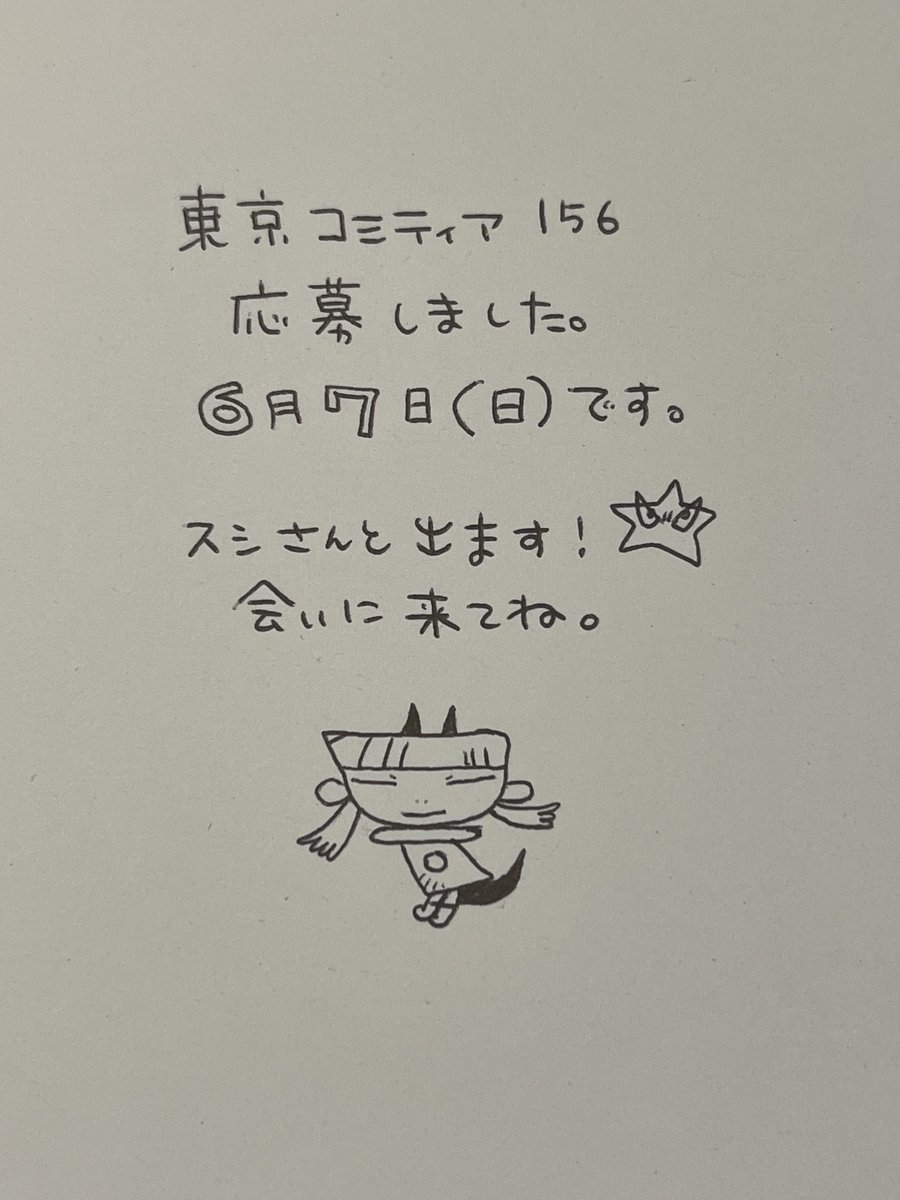 東京コミティア 156
応募しました。
6月7日(日)です。
スシさんと出ます!
会いに来てね。